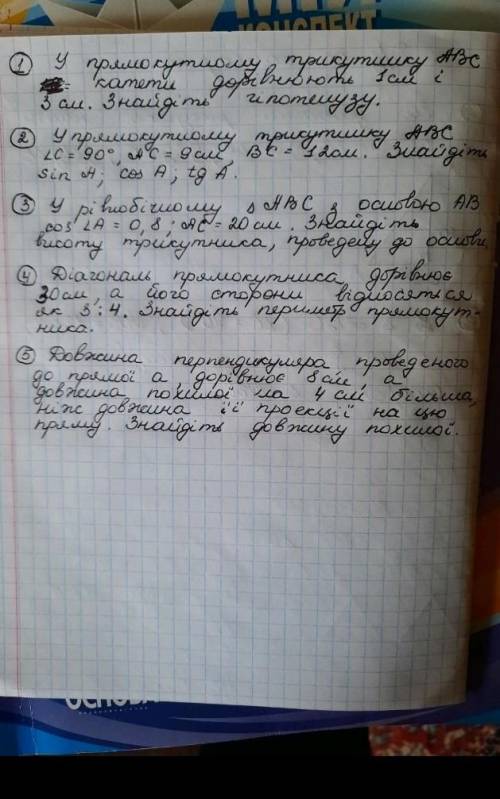 КОНСПЕКТ
① У прямокутному трикутнику ABC
катети дорівнюють 1см і
3 см. Знайдіть гіпотенузу.
② У прямокутному трикутнику ABC
∠C = 90°, AC = 9см, BC = 12см. Знайдіть
sin A; cos A; tg A.
③ У рівнобічному △ ABC з основою AB
cos ∠A = 0,8; AC = 20 см. Знайдіть
висоту трикутника, проведену до основи.
④ Діагональ прямокутника дорівнює
30см, а його сторони відносяться
як 3:4. Знайдіть периметр прямокут-
ника.
⑤ Довжина перпендикуляра проведеного
до прямої a, дорівнює 8 см, а
довжина похилої на 4 см більша,
ніж довжина її проекції на цю
пряму. Знайдіть довжину похилої.